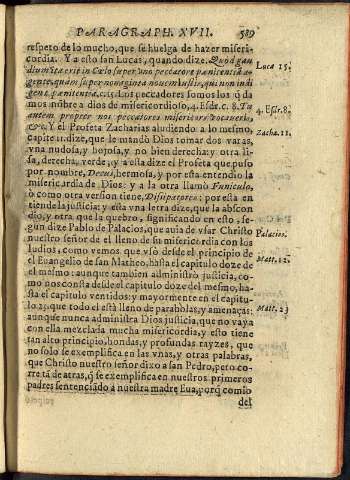 PARAGRAPH. XVII. 589
respeto de lo mucho, que se huelga de hazer miseri-
cordia. Y a esto san Lucas, quando dize. Quod gau
dium ita erit in Cœlo super vno peccatore pœnitentiã a-
gente, quàm super nonaginta nouem Iustis, qui non indi
gent pœnitentia, &c. Los peccadores somos los q̃ da
mos nõbre a dios de misericordioso, 4. Esdr. c. 8. Tu
autem propter nos peccatores misericors vocaueris,
&c. Y el Profeta Zacharias aludiendo a lo mesmo,
capite 11. dize, que le mandò Dios tomar dos varas,
vna nudosa, y hojosa, y no bien derecha: y otra li-
sa, derecha, verde, y a esta dize el Profeta que puso
por nombre, Decus, hermosa, y por esta entendio la
misericordia de Dios: y a la otra llamò Funiculo,
ò como otra version tiene, Dissipatores: por esta en
tiende la justicia: y esta vna letra dize, que la abscon
dio, y otra que la quebro, significando en esto, se-
gun dize Pablo de Palacios, que auia de vsar Christo
nuestro señor de el lleno de su misericordia con los
Iudios: como vemos que vsò desde el principio de
el Euangelio de san Matheo, hasta el capitulo doze de
el mesmo: aunque tambien administrò justicia, co-
mo nos consta desde el capitulo doze del mesmo, ha-
sta el capitulo ventidos: y mayormente en el capitu-
lo 23. que todo el està lleno de parabolas, y amenaças:
aunque nunca administra Dios justicia, que no vaya
con ella mezclada mucha misericordia, y esto tiene
tan alto principio, hondas, y profundas rayzes, que
no solo se exemplifica en las vnas, y otras palabras,
que Christo nuestro señor dixo a san Pedro, pero co-
rre tã de atras, q̃ se exemplifica en nuestros primeros
padres sentenciãdo à nuestra madre Eua, porq̃ comio
del
Luca 15.
4. Esdr. 8.
Zacha. 11.
Palacios.
Matt. 12.
Matt. 23